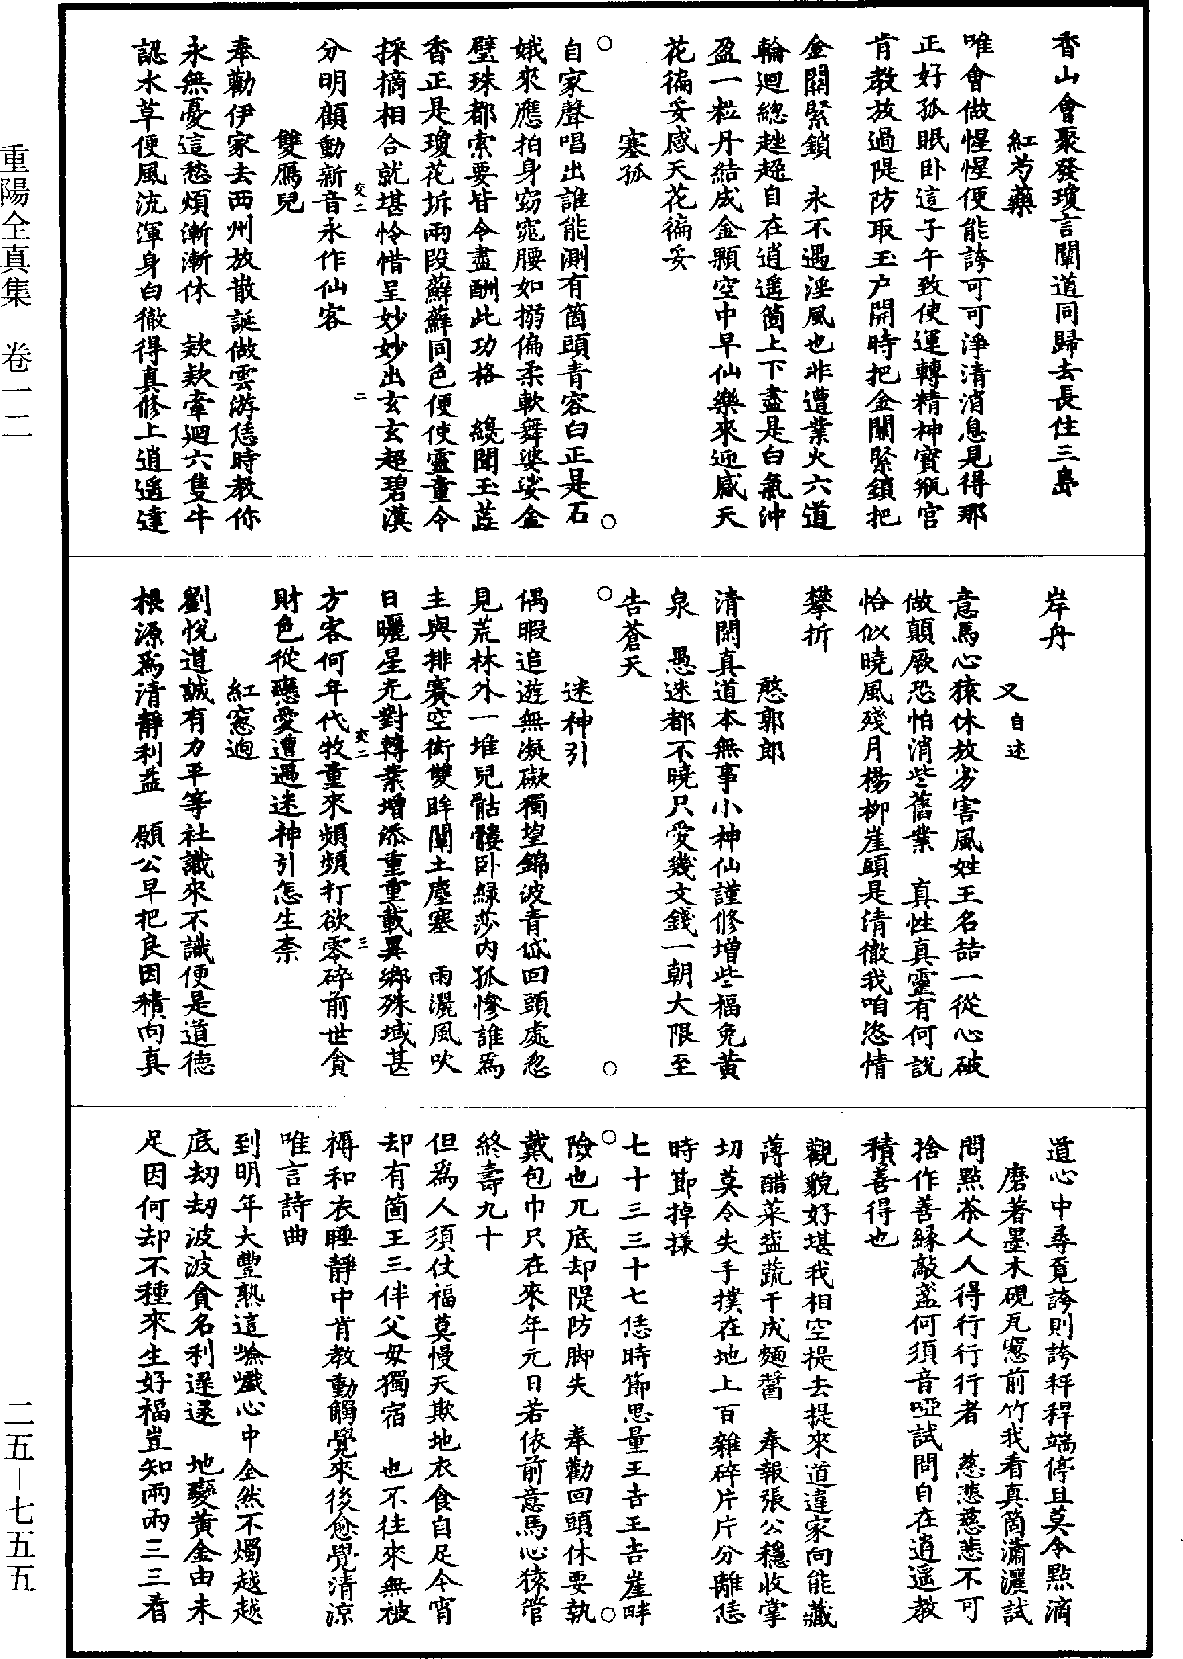 香山會聚發瓊言闡道同歸去長住三島
紅芍藥
唯會做惺惺便能誇可可淨清消息見得那
正好孤眠卧這子午致使運轉精神寳瓶宫
肯教放過隄防取玉户開時把金關緊鎖把
金關緊鎖　永不遇淫風也非遭業火六道
輪迴總趓趯自在逍遥箇上下盡是白氣沖
盈一粒丹結成金顆空中早仙樂來迎感天
花徧妥感天花徧妥
塞孤
自家聲唱出誰能測有箇頭青容白正是石
娥來應拍身窈窕腰如搦偏柔軟舞婆娑金
璧珠都索要皆令盡酬此功格　纔聞玉蕋
香正是瓊花坼兩段蘚蘚同色便使靈童令
採摘相合就堪怜惜呈妙妙出玄玄超碧漢
分明顧動新音永作仙客
雙鴈兒
奉勸伊家去西州放散誕做雲游恁時教你
永無憂這愁煩漸漸休　欵欵牽迴六隻牛
認水草便風流渾身白徹得真修上逍遥達
岸舟
又自述
意馬心猿休放劣害風姓王名喆一從心破
做顛厥恐怕消些舊業　真性真靈有何説
恰似曉風殘月楊柳崖頭是清徹我咱恣情
攀折
憨郭郎
清閑真道本無事小神仙謹修增些福免黄
泉　愚迷都不曉只愛幾文錢一朝大限至
告蒼天
迷神引
偶暇追遊無凝礙獨望錦波青岱回頭處忽
見荒林外一堆兒骷髏卧緑莎内孤慘誰爲
主與排賽空衘雙眸闡土塵塞　雨灑風吹
日曬星光對轉業增添重重載異鄉殊域甚
方客何年代牧童來頻頻打欲零碎前世貪
財色從戀愛遭遇迷神引怎生柰
紅窻逈
劉悦道誠有力平等社識來不識便是道德
根源爲清靜利益　願公早把良因積向真
道心中尋覔誇則誇秤稈端停且莫令點滴
磨著墨木硯瓦窻前竹我看真箇瀟灑試
問點茶人人得行行行者　慈悲慈悲不可
捨作善緣敲盞何須音啞試問自在逍遥教
積善得也
觀貌好堪我相空提去提來道違家向能藏
薄醋菜盗蔬干成麵醬　奉報張公穩收掌
切莫令失手撲在地上百雜碎片片分離恁
時節掉㨾
七十三三十七恁時節思量王吉王吉崖畔
險也兀底却隄防脚失　奉勸回頭休要執
戴包巾只在來年元日若依前意馬心猿管
終壽九十
但爲人須仗福莫慢天欺地衣食自足今宵
却有箇王三伴父母獨宿　也不往來無被
褥和衣睡靜中肯教動觸覺來後愈覺清凉
唯言詩曲
到明年大豐熟這㺌㺤心中全然不燭越越
底刼刼波波貪名利遲逐　地變黄金由未
足因何却不種來生好福豈知兩兩三三看
重陽全真集　卷一二
二五—七五五